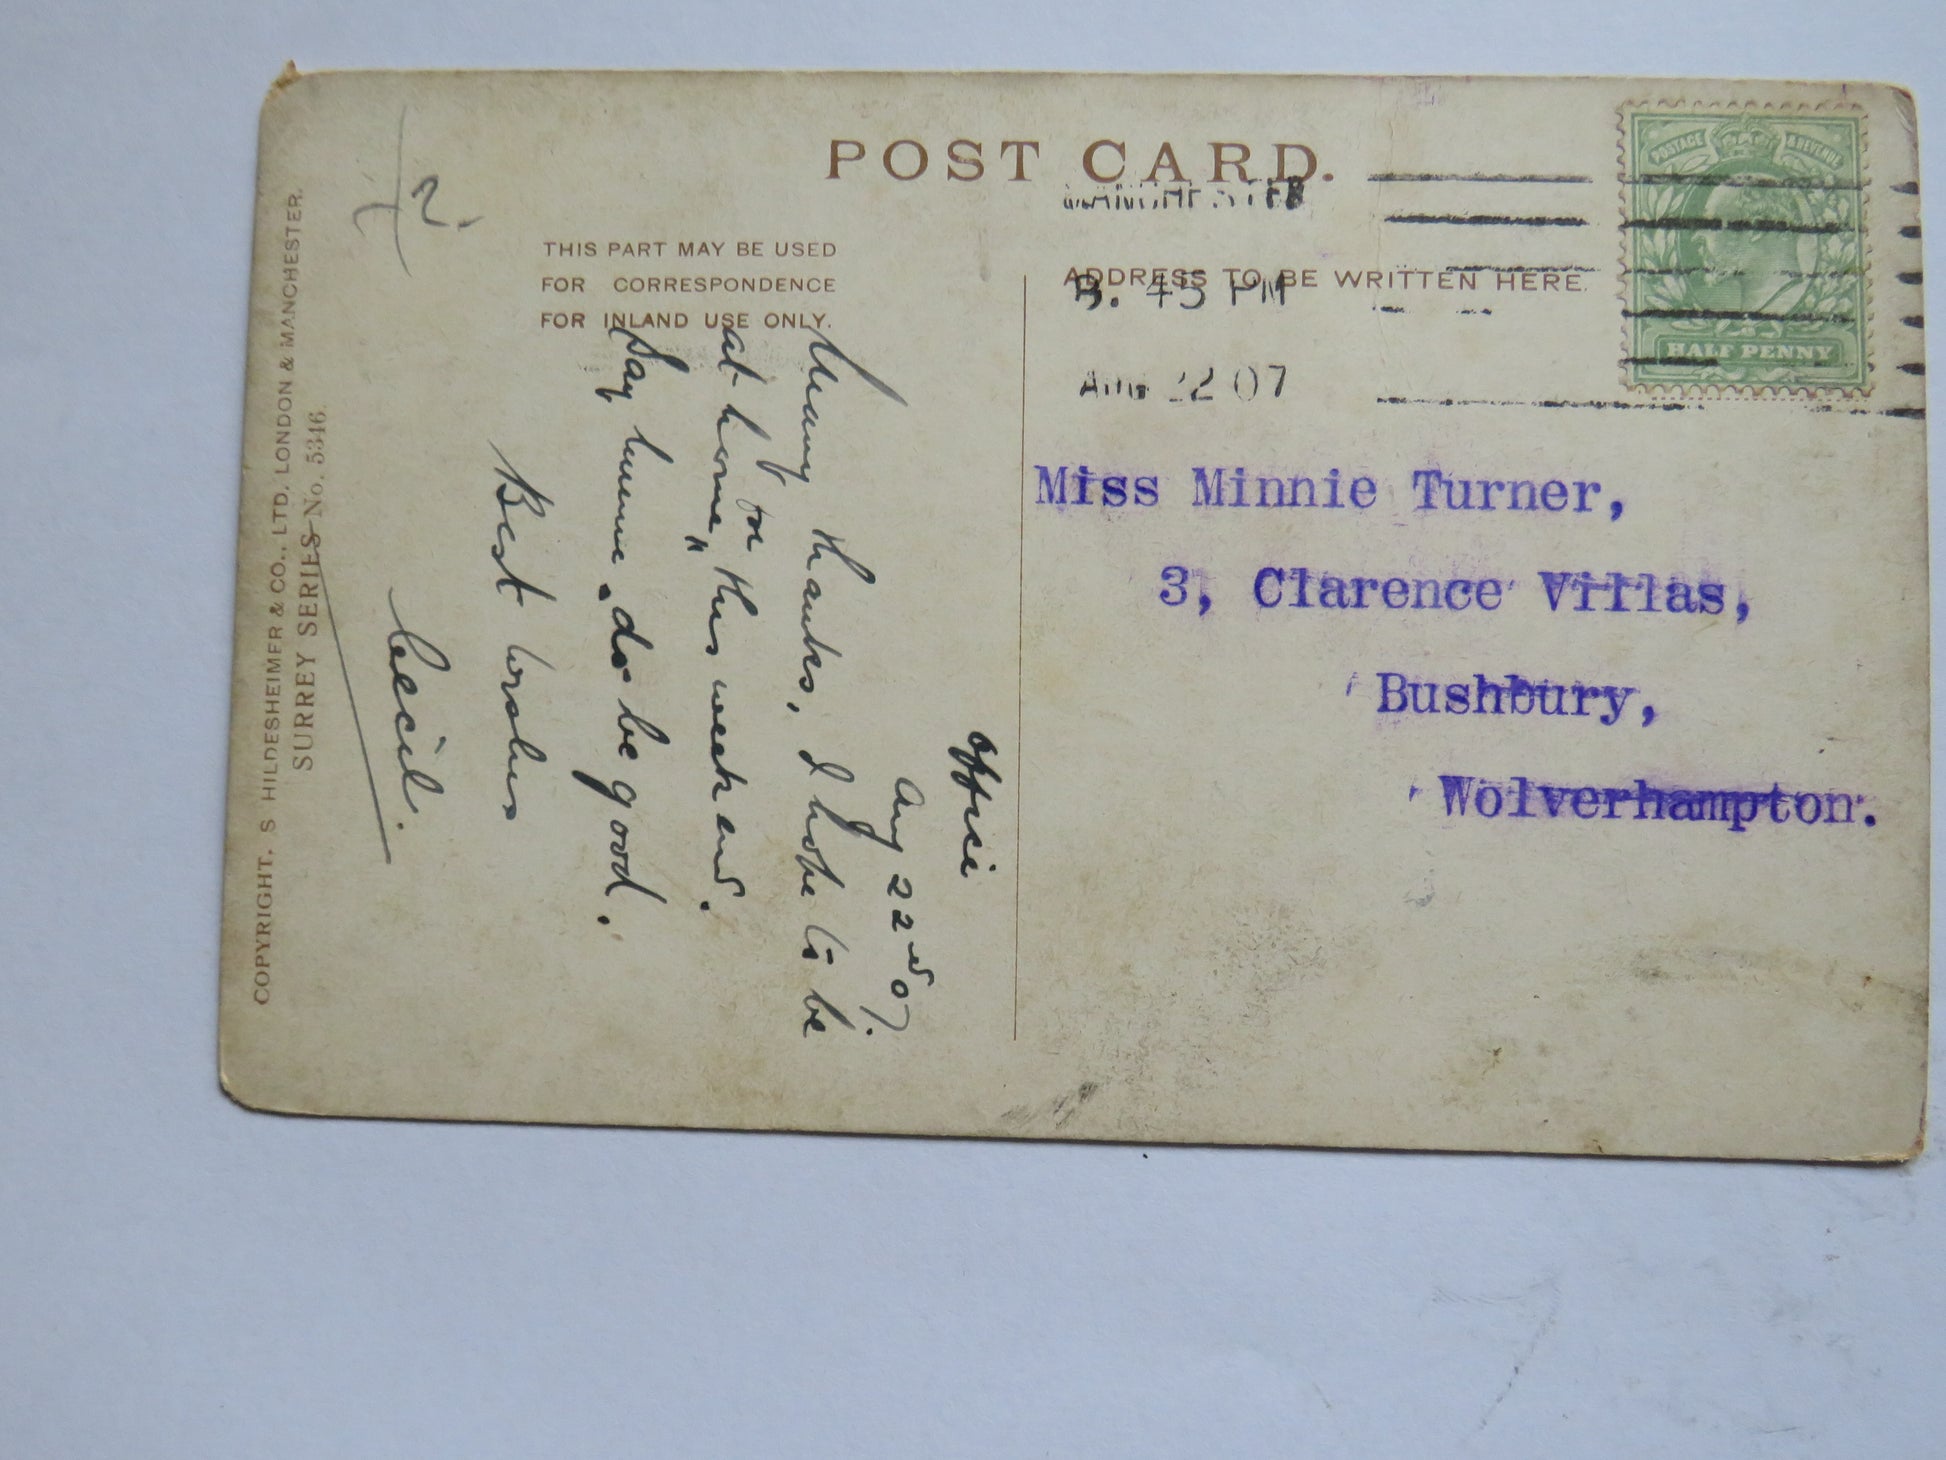 POST CARD.
THIS PART MAY BE USED
FOR CORRESPONDENCE
FOR INLAND USE ONLY.
ADDRESS TO BE WRITTEN HERE.
MANCHESTER
45 PM
AUG 22 07
POSTAGE & REVENUE
HALF PENNY
Miss Minnie Turner,
3, Clarence Villas,
Bushbury,
Wolverhampton.
Office
Aug 22nd 07.
Many thanks, I hope to be
at home, this week end.
for
Say when do be good.
Best wishes
Cecil.
COPYRIGHT. S HILDESHEIMER & CO., LTD. LONDON & MANCHESTER.
SURREY SERIES No. 5346.